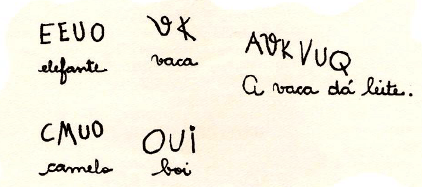 EEUO
elefante
VK
vaca
AVKVUQ
A vaca dá leite.
CMUO
camelo
OUi
boi